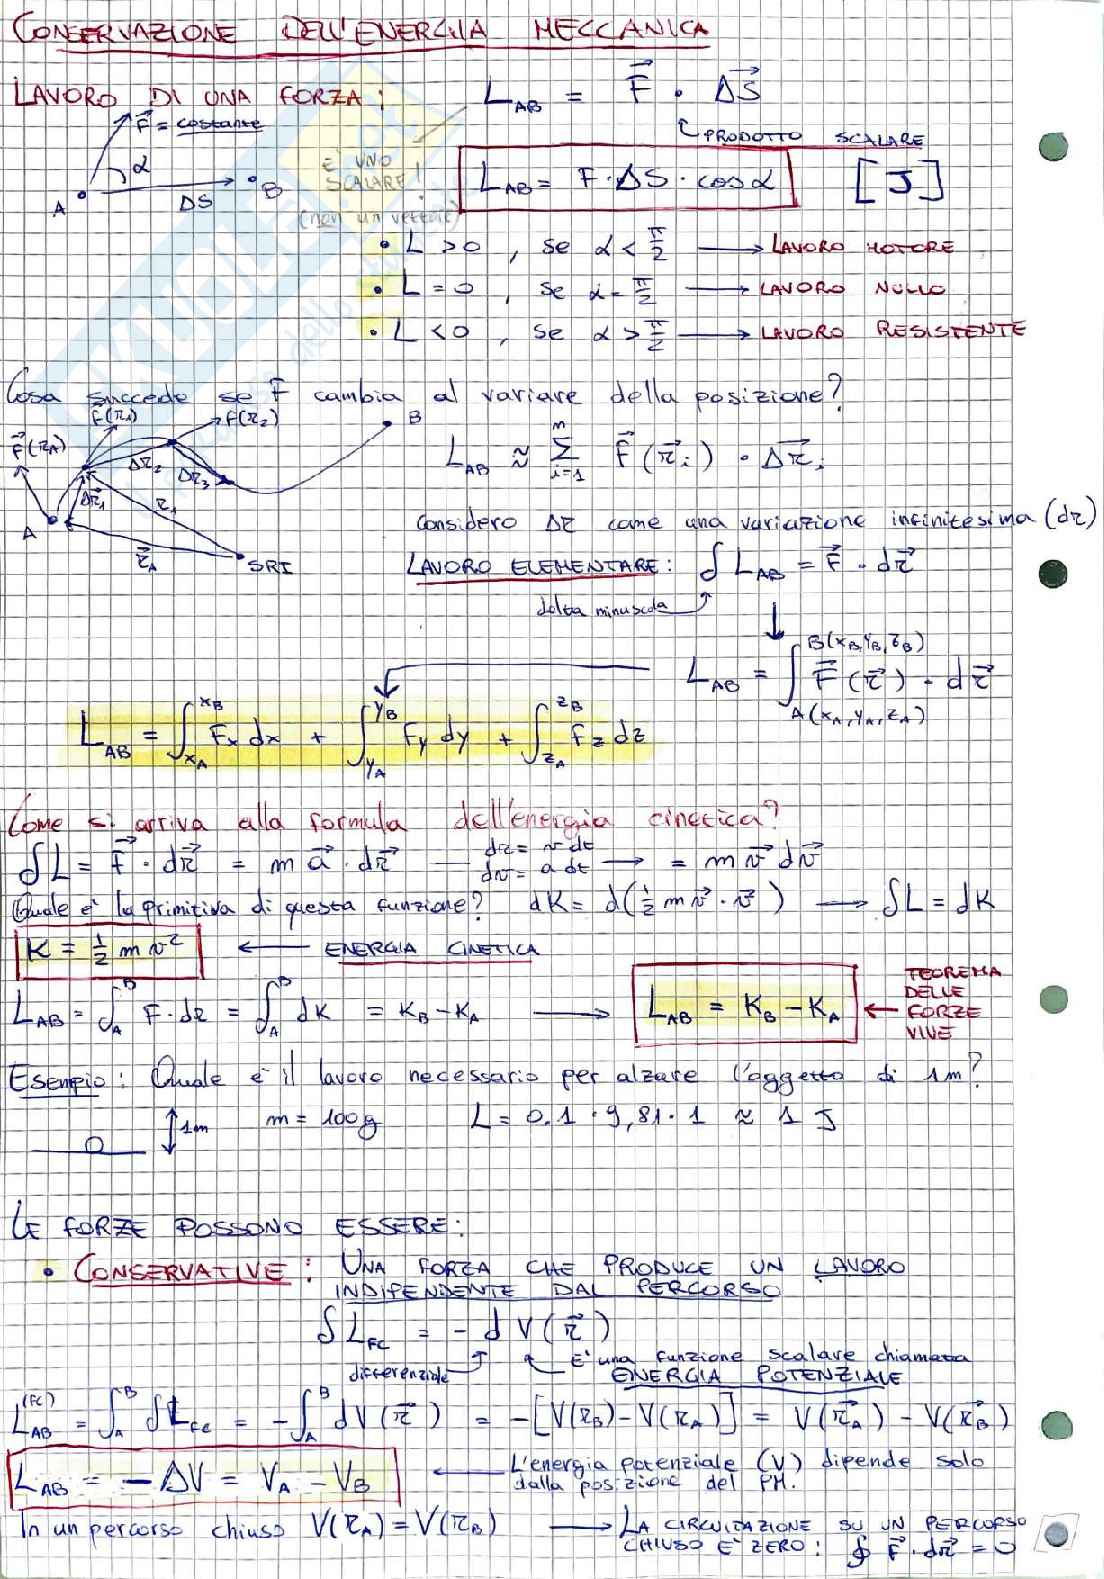 CONSERVAZIONE DELL'ENERGIA MECCANICA
LAVORO DI UNA FORZA: L_AB = F⃗ · ΔS⃗
F⃗ = costante
PRODOTTO SCALARE
α
A ΔS B
E' UNO SCALARE! (non un vettore)
L_AB = F·ΔS·cosα [J]
• L > 0, se α < π/2 → LAVORO MOTORE
• L = 0, se α = π/2 → LAVORO NULLO
• L < 0, se α > π/2 → LAVORO RESISTENTE
Cosa succede se F cambia al variare della posizione?
F⃗(r_A) f(r_1) f(r_2) B
Δr⃗_1 Δr_2 Δr_3 r_1
A r⃗_A SRI
L_AB ≈ Σ_{i=1}^{n} F⃗(r⃗_i) · Δr⃗_i
Considero Δr come una variazione infinitesima (dr)
LAVORO ELEMENTARE: δL_AB = F⃗ · dr⃗
delta minuscola
L_AB = ∫_{A(x_A, y_A, z_A)}^{B(x_B, y_B, z_B)} F⃗(r⃗) · dr⃗
L_AB = ∫_{x_A}^{x_B} F_x dx + ∫_{y_A}^{y_B} F_y dy + ∫_{z_A}^{z_B} F_z dz
Come si arriva alla formula dell'energia cinetica?
δL = F⃗ · dr⃗ = m a⃗ · dr⃗ — dr = v dt dv = a dt → = m v⃗ dv⃗
Quale è la primitiva di questa funzione? dK = d(½ m v⃗ · v⃗) → δL = dK
K = ½ m v² ← ENERGIA CINETICA
L_AB = ∫_A^B F · dr = ∫_A^B dK = K_B − K_A → L_AB = K_B − K_A ← TEOREMA DELLE FORZE VIVE
Esempio: Quale è il lavoro necessario per alzare l'oggetto di 1m?
1m m = 100g L = 0,1 · 9,81 · 1 ≈ 1 J
LE FORZE POSSONO ESSERE:
• CONSERVATIVE: UNA FORZA CHE PRODUCE UN LAVORO
INDIPENDENTE DAL PERCORSO
δL_FC = − d V(r⃗)
differenziale E' una funzione scalare chiamata
ENERGIA POTENZIALE
L_AB^(FC) = ∫_A^B δL_FC = −∫_A^B dV(r⃗) = −[V(r_B) − V(r_A)] = V(r⃗_A) − V(r⃗_B)
L_AB = −ΔV = V_A − V_B ← L'energia potenziale (V) dipende solo
dalla posizione del PM.
In un percorso chiuso V(r_A) = V(r_B) → LA CIRCUITAZIONE SU UN PERCORSO
CHIUSO E' ZERO: ∮ F⃗ · dr⃗ = 0